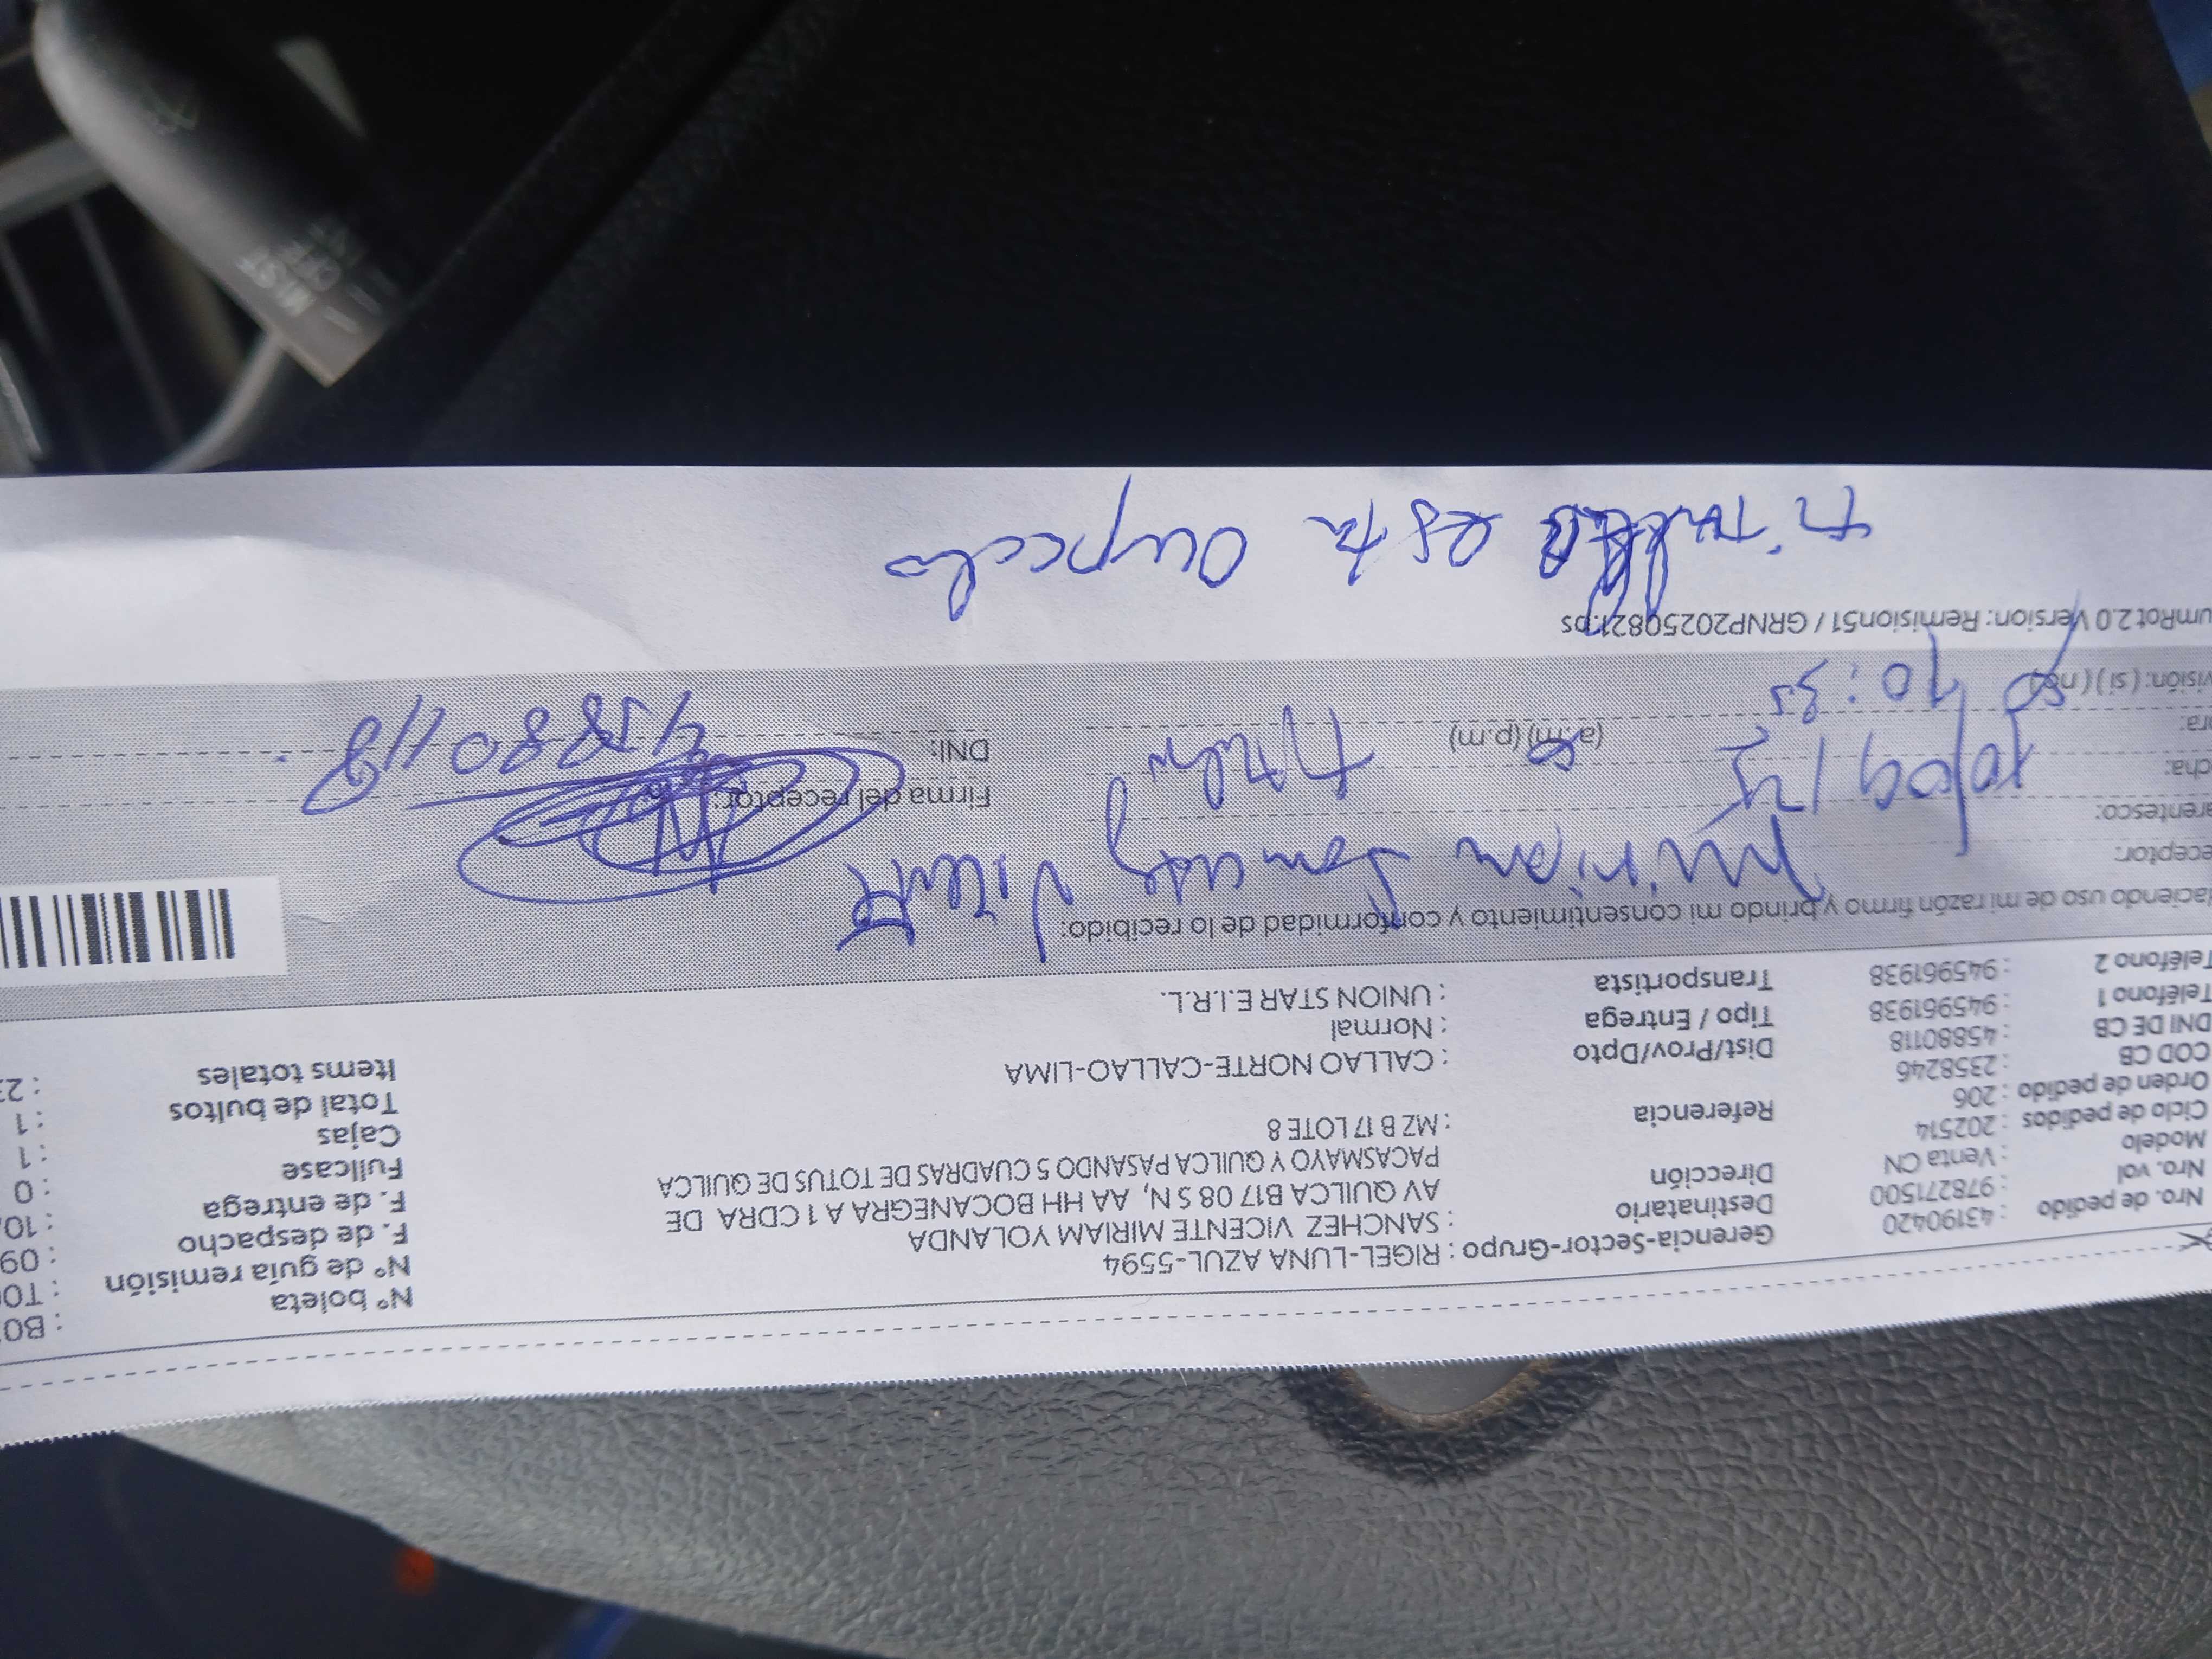 Nro. de pedido : 43190420
Nro. vol : 978271500
Modelo : Venta CN
Ciclo de pedidos : 202514
Orden de pedido : 206
COD CB : 2358246
DNI DE CB : 45880118
Teléfono 1 : 945961938
Teléfono 2 : 945961938
Gerencia-Sector-Grupo : RIGEL-LUNA AZUL-5594
Destinatario : SANCHEZ VICENTE MIRIAM YOLANDA
Dirección AV QUILCA B17 08 S N, AA HH BOCANEGRA A 1 CDRA DE
PACASMAYO Y QUILCA PASANDO 5 CUADRAS DE TOTUS DE QUILCA
Referencia : MZ B 17 LOTE 8
Dist/Prov/Dpto : CALLAO NORTE-CALLAO-LIMA
Tipo / Entrega : Normal
Transportista : UNION STAR E.I.R.L.
N° boleta : B0
N° de guía remisión : T0
F. de despacho : 09
F. de entrega : 10
Fullcase : 0
Cajas : 1
Total de bultos : 1
Items totales : 23
Haciendo uso de mi razón firmo y brindo mi consentimiento y conformidad de lo recibido:
eceptor: Miriam Vicente
arentesco: Titular
cha: 10/09/25
ra: 10:35 (a.m) (p.m)
visión: ( si ) ( no )
Firma del receptor:
DNI: 45880118
umRot 2.0 Version: Remision51 / GRNP20250821.ps
esta ocupado
MIST